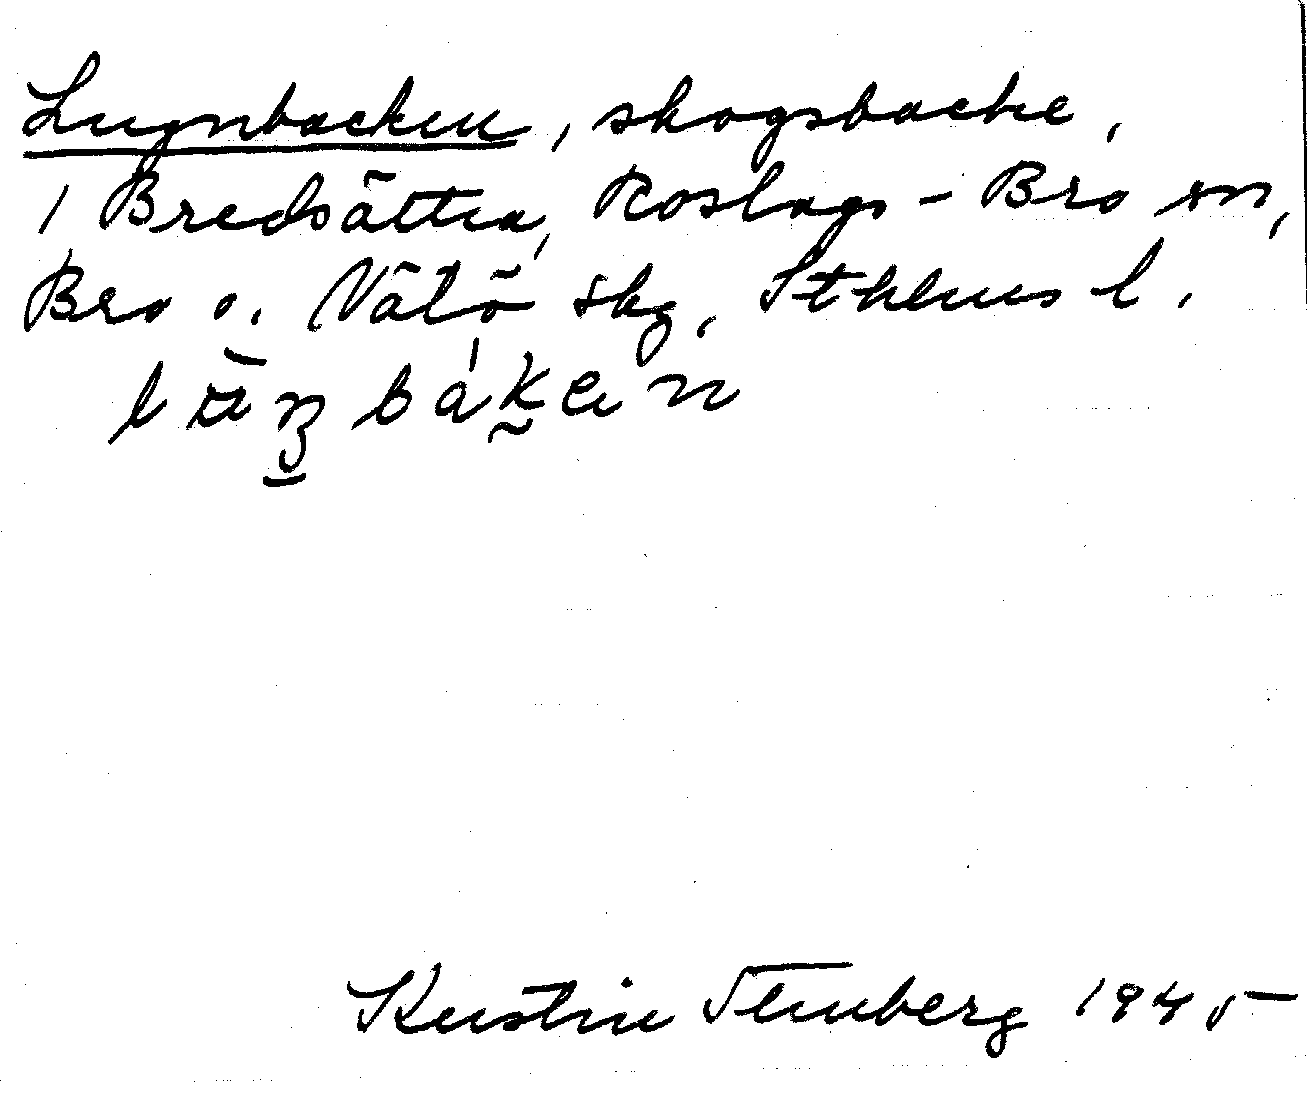 Lugnbacken, skogsbacke,
i Bredsättra, Roslags-Bro sn,
Bro o. Vätö skg, Sthlms l.
Kerstin Stenberg 1945